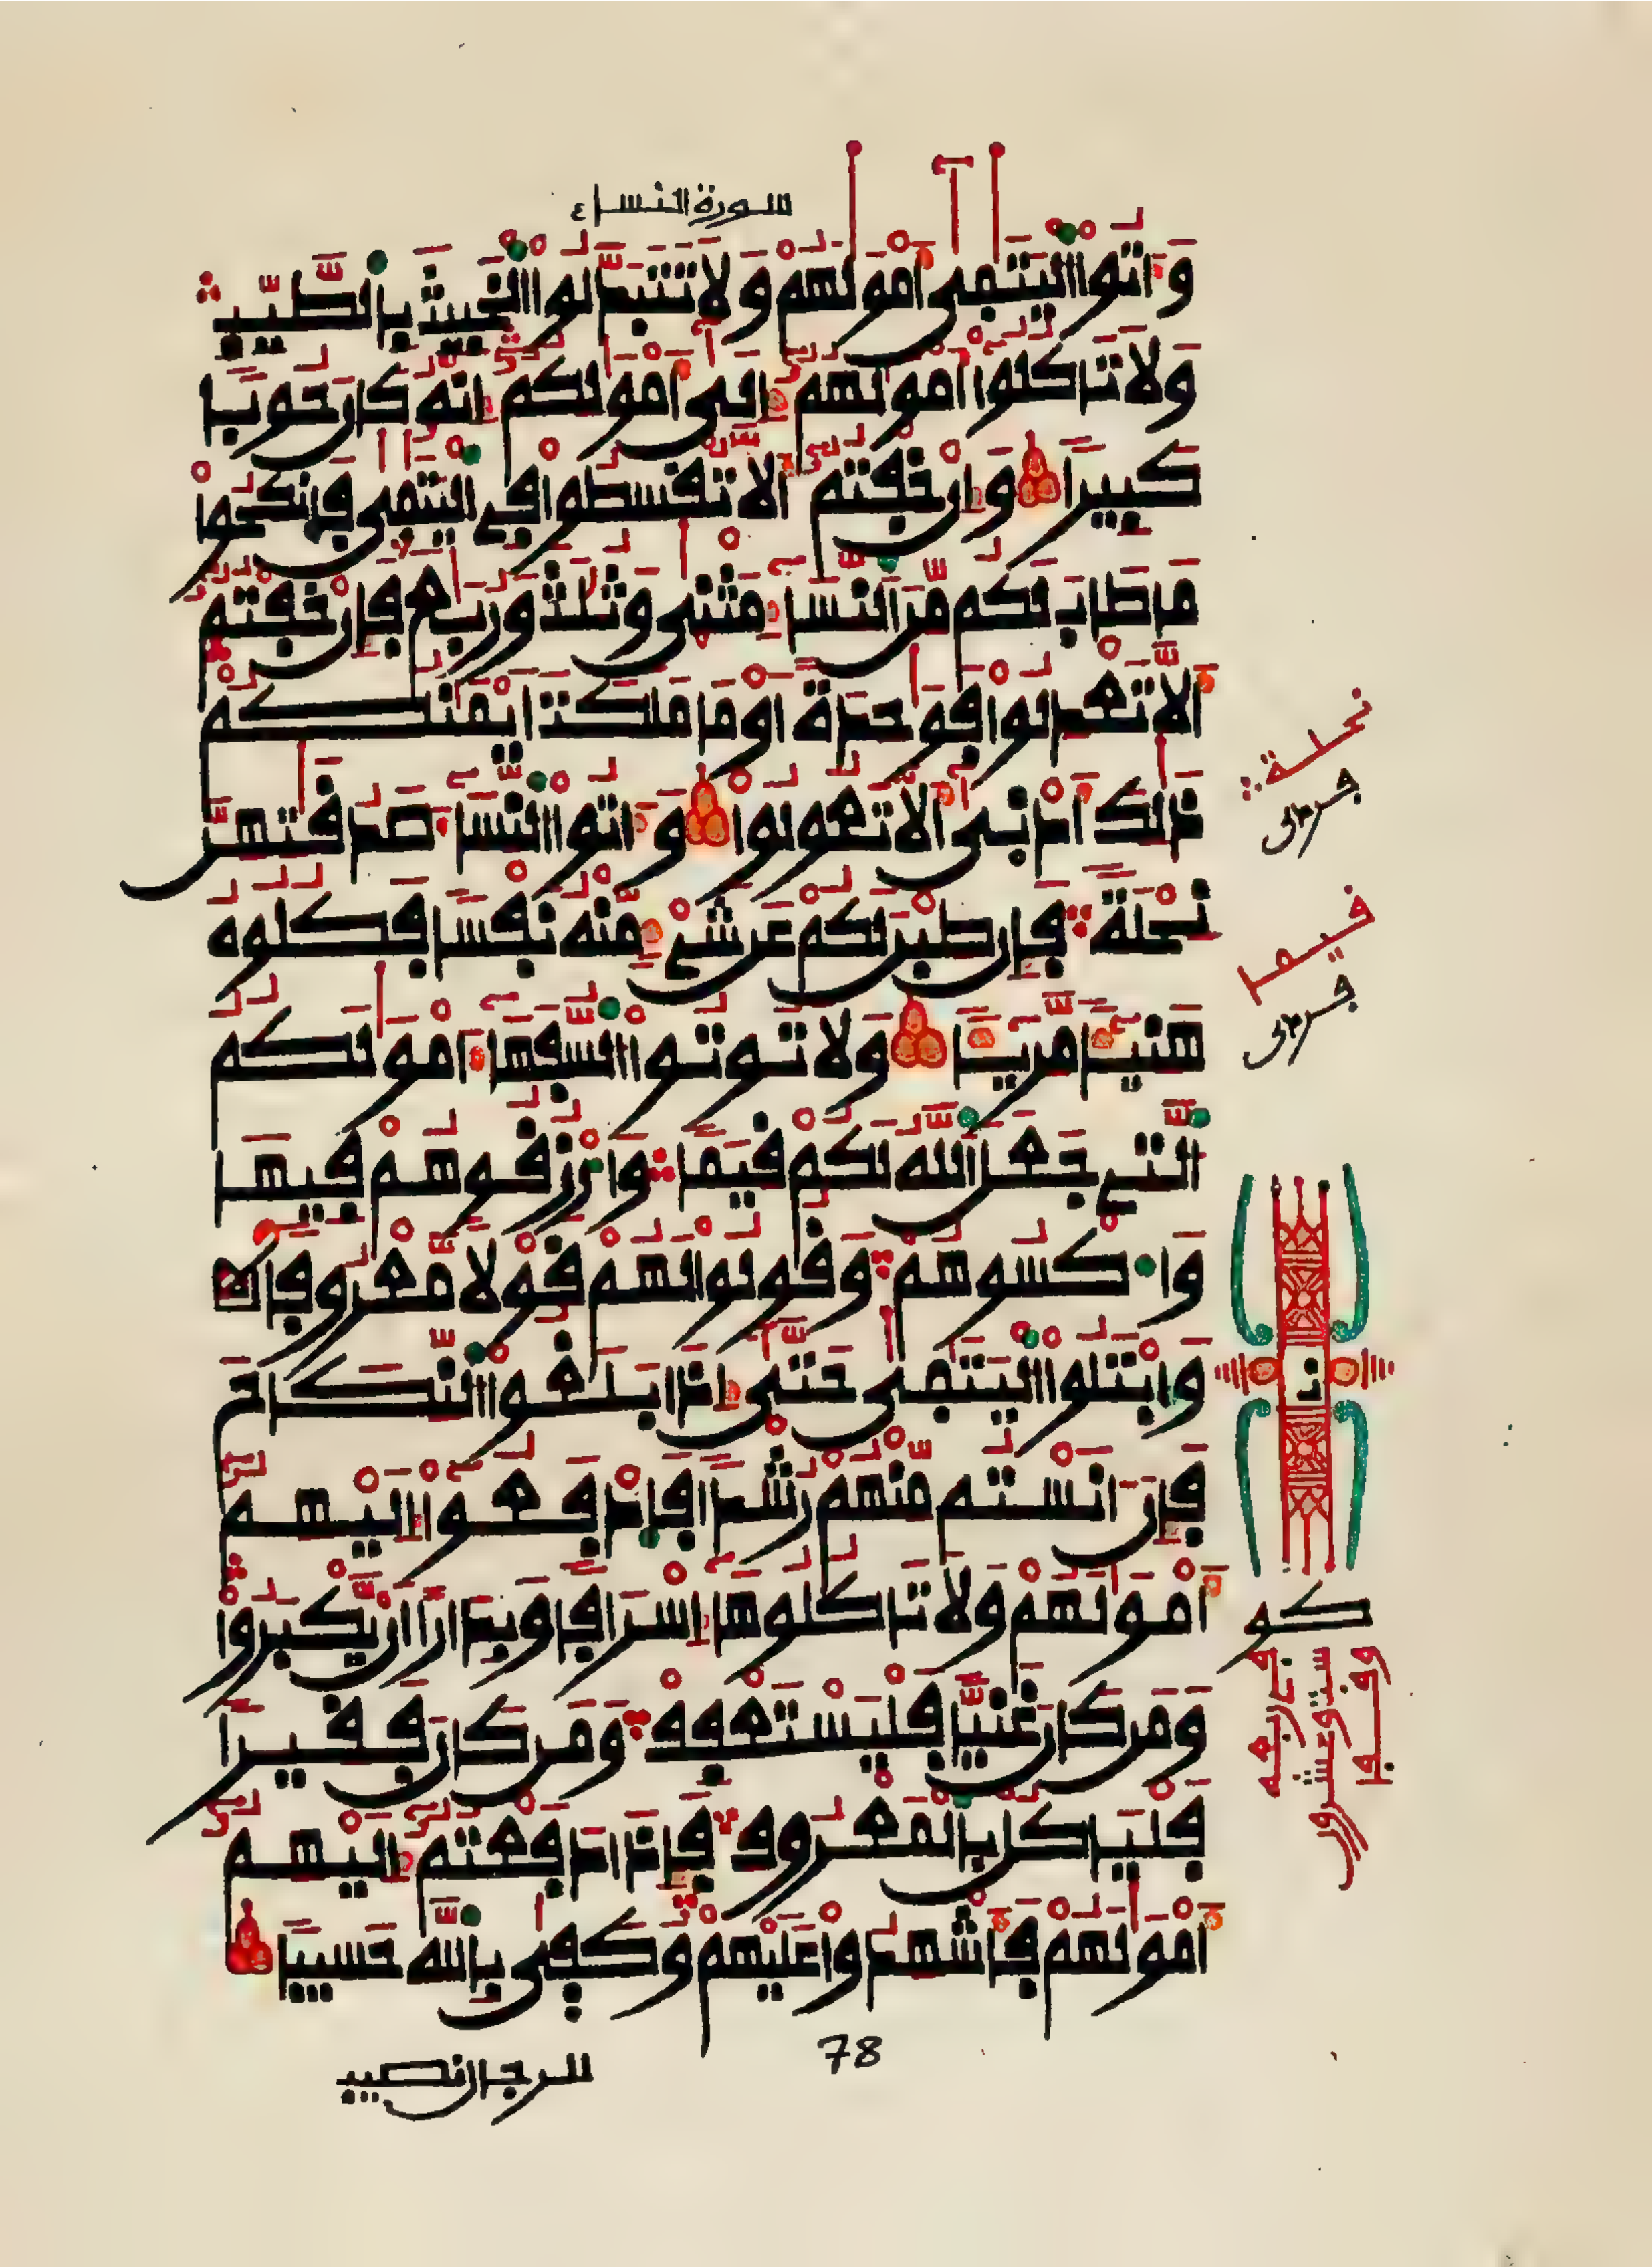 سورة النساء ٤
وَءَاتُوا۟ الْيَتَٰمَىٰ أَمْوَٰلَهُمْ وَلَا تَتَبَدَّلُوا۟ الْخَبِيثَ بِالطَّيِّبِ
وَلَا تَاكُلُوا۟ أَمْوَٰلَهُمُۥ إِلَىٰ أَمْوَٰلِكُمُۥ إِنَّهُۥ كَانَ حُوباٗ
كَبِيراٗ وَإِنْ خِفْتُمُۥ أَلَّا تُقْسِطُوا۟ فِي الْيَتَٰمَىٰ فَانكِحُوا۟
مَا طَابَ لَكُم مِّنَ النِّسَآءِ مَثْنَىٰ وَثُلَٰثَ وَرُبَٰعَ فَإِنْ خِفْتُمُۥ
أَلَّا تَعْدِلُوا۟ فَوَٰحِدَةً اَوْ مَا مَلَكَتَ اَيْمَٰنُكُمْ
ذَٰلِكَ أَدْنَىٰ أَلَّا تَعُولُوا۟ وَءَاتُوا۟ النِّسَآءَ صَدُقَٰتِهِنَّ
نِحْلَةٗ فَإِن طِبْنَ لَكُمْ عَن شَيْءٖ مِّنْهُ نَفْساٗ فَكُلُوهُ
هَنِيٓـٔاٗ مَّرِيٓـٔاٗ وَلَا تُوتُوا۟ السُّفَهَآءَ امْوَٰلَكُمُ
الَّتِے جَعَلَ اللَّهُ لَكُمْ قِيَماٗ وَارْزُقُوهُمْ فِيهَا
وَاكْسُوهُمْ وَقُولُوا۟ لَهُمْ قَوْلاٗ مَّعْرُوفاٗ
وَابْتَلُوا۟ الْيَتَٰمَىٰ حَتَّىٰٓ إِذَا بَلَغُوا۟ النِّكَاحَ
فَإِنَ اٰنَسْتُم مِّنْهُمْ رُشْداٗ فَادْفَعُوٓا۟ إِلَيْهِمُۥ
أَمْوَٰلَهُمْ وَلَا تَاكُلُوهَآ إِسْرَافاٗ وَبِدَاراً اَنْ يَّكْبَرُوا۟
وَمَن كَانَ غَنِيّاٗ فَلْيَسْتَعْفِفْ وَمَن كَانَ فَقِيراٗ
فَلْيَاكُلْ بِالْمَعْرُوفِ فَإِذَا دَفَعْتُمُۥ إِلَيْهِمُۥ
أَمْوَٰلَهُمْ فَأَشْهِدُوا۟ عَلَيْهِمْ وَكَفَىٰ بِاللَّهِ حَسِيباٗ
نحلة
قيما
ن
كو
78
للرجال نصيب